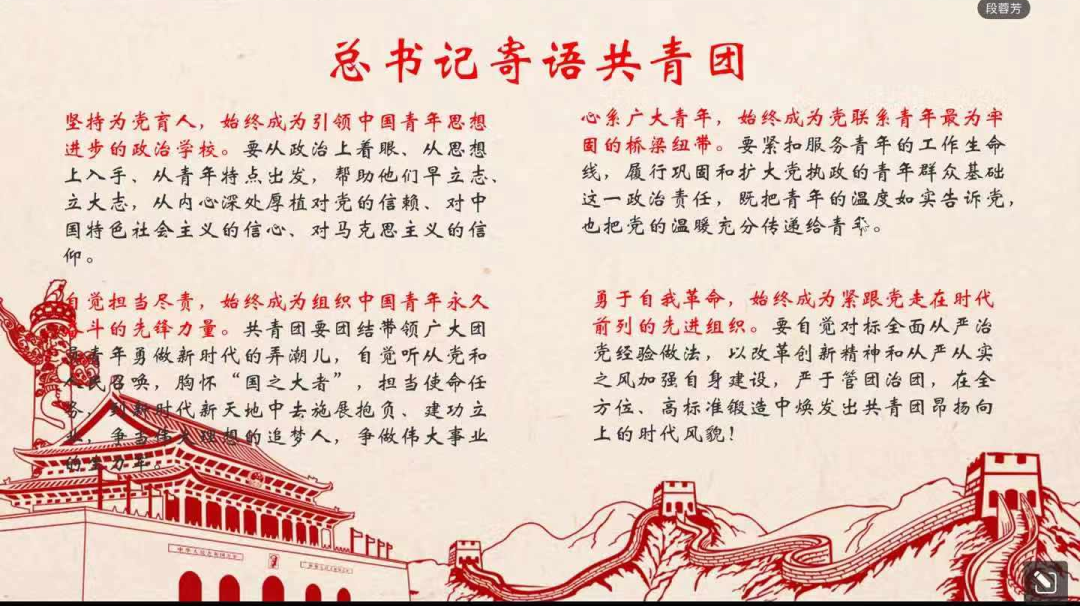 段蓉芳
总书记寄语共青团
坚持为党育人，始终成为引领中国青年思想
进步的政治学校。要从政治上着眼、从思想
上入手、从青年特点出发，帮助他们早立志、
立大志，从内心深处厚植对党的信赖、对中
国特色社会主义的信心、对马克思主义的信
仰。
自觉担当尽责，始终成为组织中国青年永久
奋斗的先锋力量。共青团要团结带领广大团
员青年勇做新时代的弄潮儿，自觉听从党和
人民召唤，胸怀“国之大者”，担当使命任
务，到新时代新天地中去施展抱负、建功立
业，争当伟大理想的追梦人，争做伟大事业
的生力军。
心系广大青年，始终成为党联系青年最为牢
固的桥梁纽带。要紧扣服务青年的工作生命
线，履行巩固和扩大党执政的青年群众基础
这一政治责任，既把青年的温度如实告诉党，
也把党的温暖充分传递给青年。
勇于自我革命，始终成为紧跟党走在时代
前列的先进组织。要自觉对标全面从严治
党经验做法，以改革创新精神和从严从实
之风加强自身建设，严于管团治团，在全
方位、高标准锻造中焕发出共青团昂扬向
上的时代风貌！